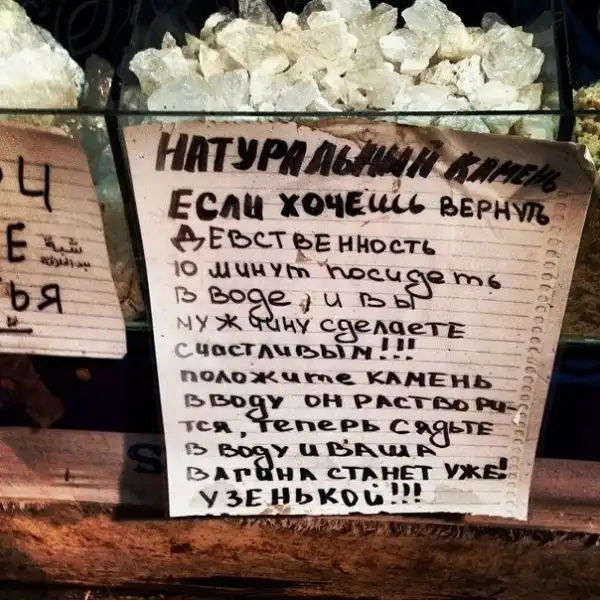 Ч
Е شبة
ЬЯ
НАТУРАЛЬНЫЙ КАМЕНЬ
ЕСЛИ ХОЧЕШЬ ВЕРНУТЬ
ДЕВСТВЕННОСТЬ
10 МИНУТ ПОСИДЕТЬ
В ВОДЕ, И ВЫ
МУЖЧИНУ СДЕЛАЕТЕ
СЧАСТЛИВЫМ!!!
ПОЛОЖИТЕ КАМЕНЬ
В ВОДУ ОН РАСТВОРИ-
ТСЯ, ТЕПЕРЬ СЯДЬТЕ
В ВОДУ И ВАША
ВАГИНА СТАНЕТ УЖЕ!
УЗЕНЬКОЙ!!!